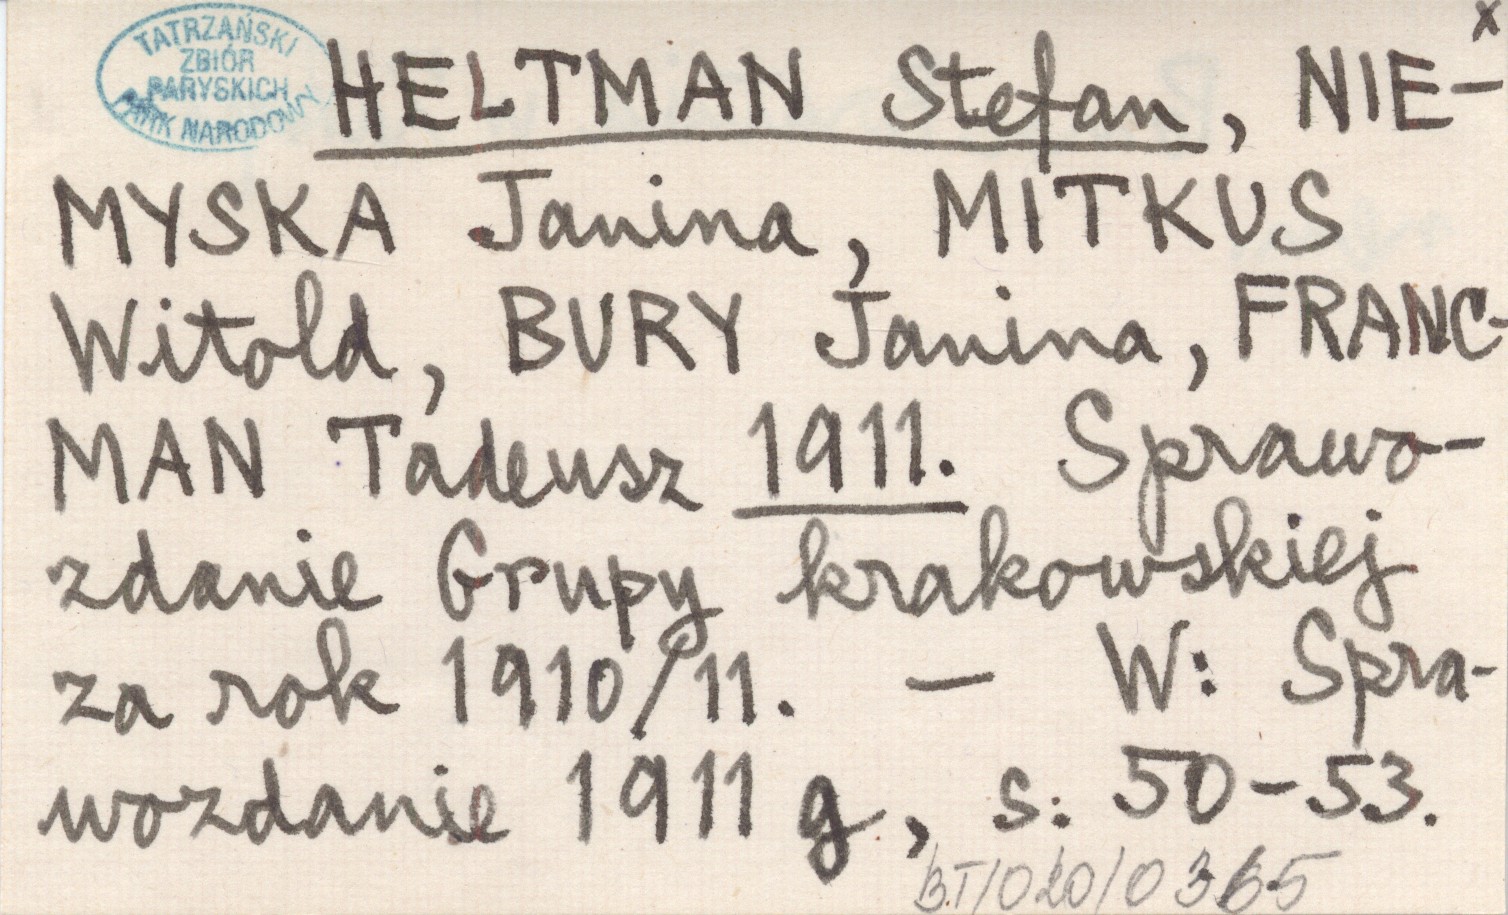 x
TATRZAŃSKI
ZBIÓR
PARYSKICH
PARK NARODOWY
HELTMAN Stefan, NIE-
MYSKA Janina, MITKUS
Witold, BURY Janina, FRANC-
MAN Tadeusz 1911. Sprawo-
zdanie Grupy krakowskiej
za rok 1910/11. — W: Spra-
wozdanie 1911 g, s: 50-53.
BT/020/0365